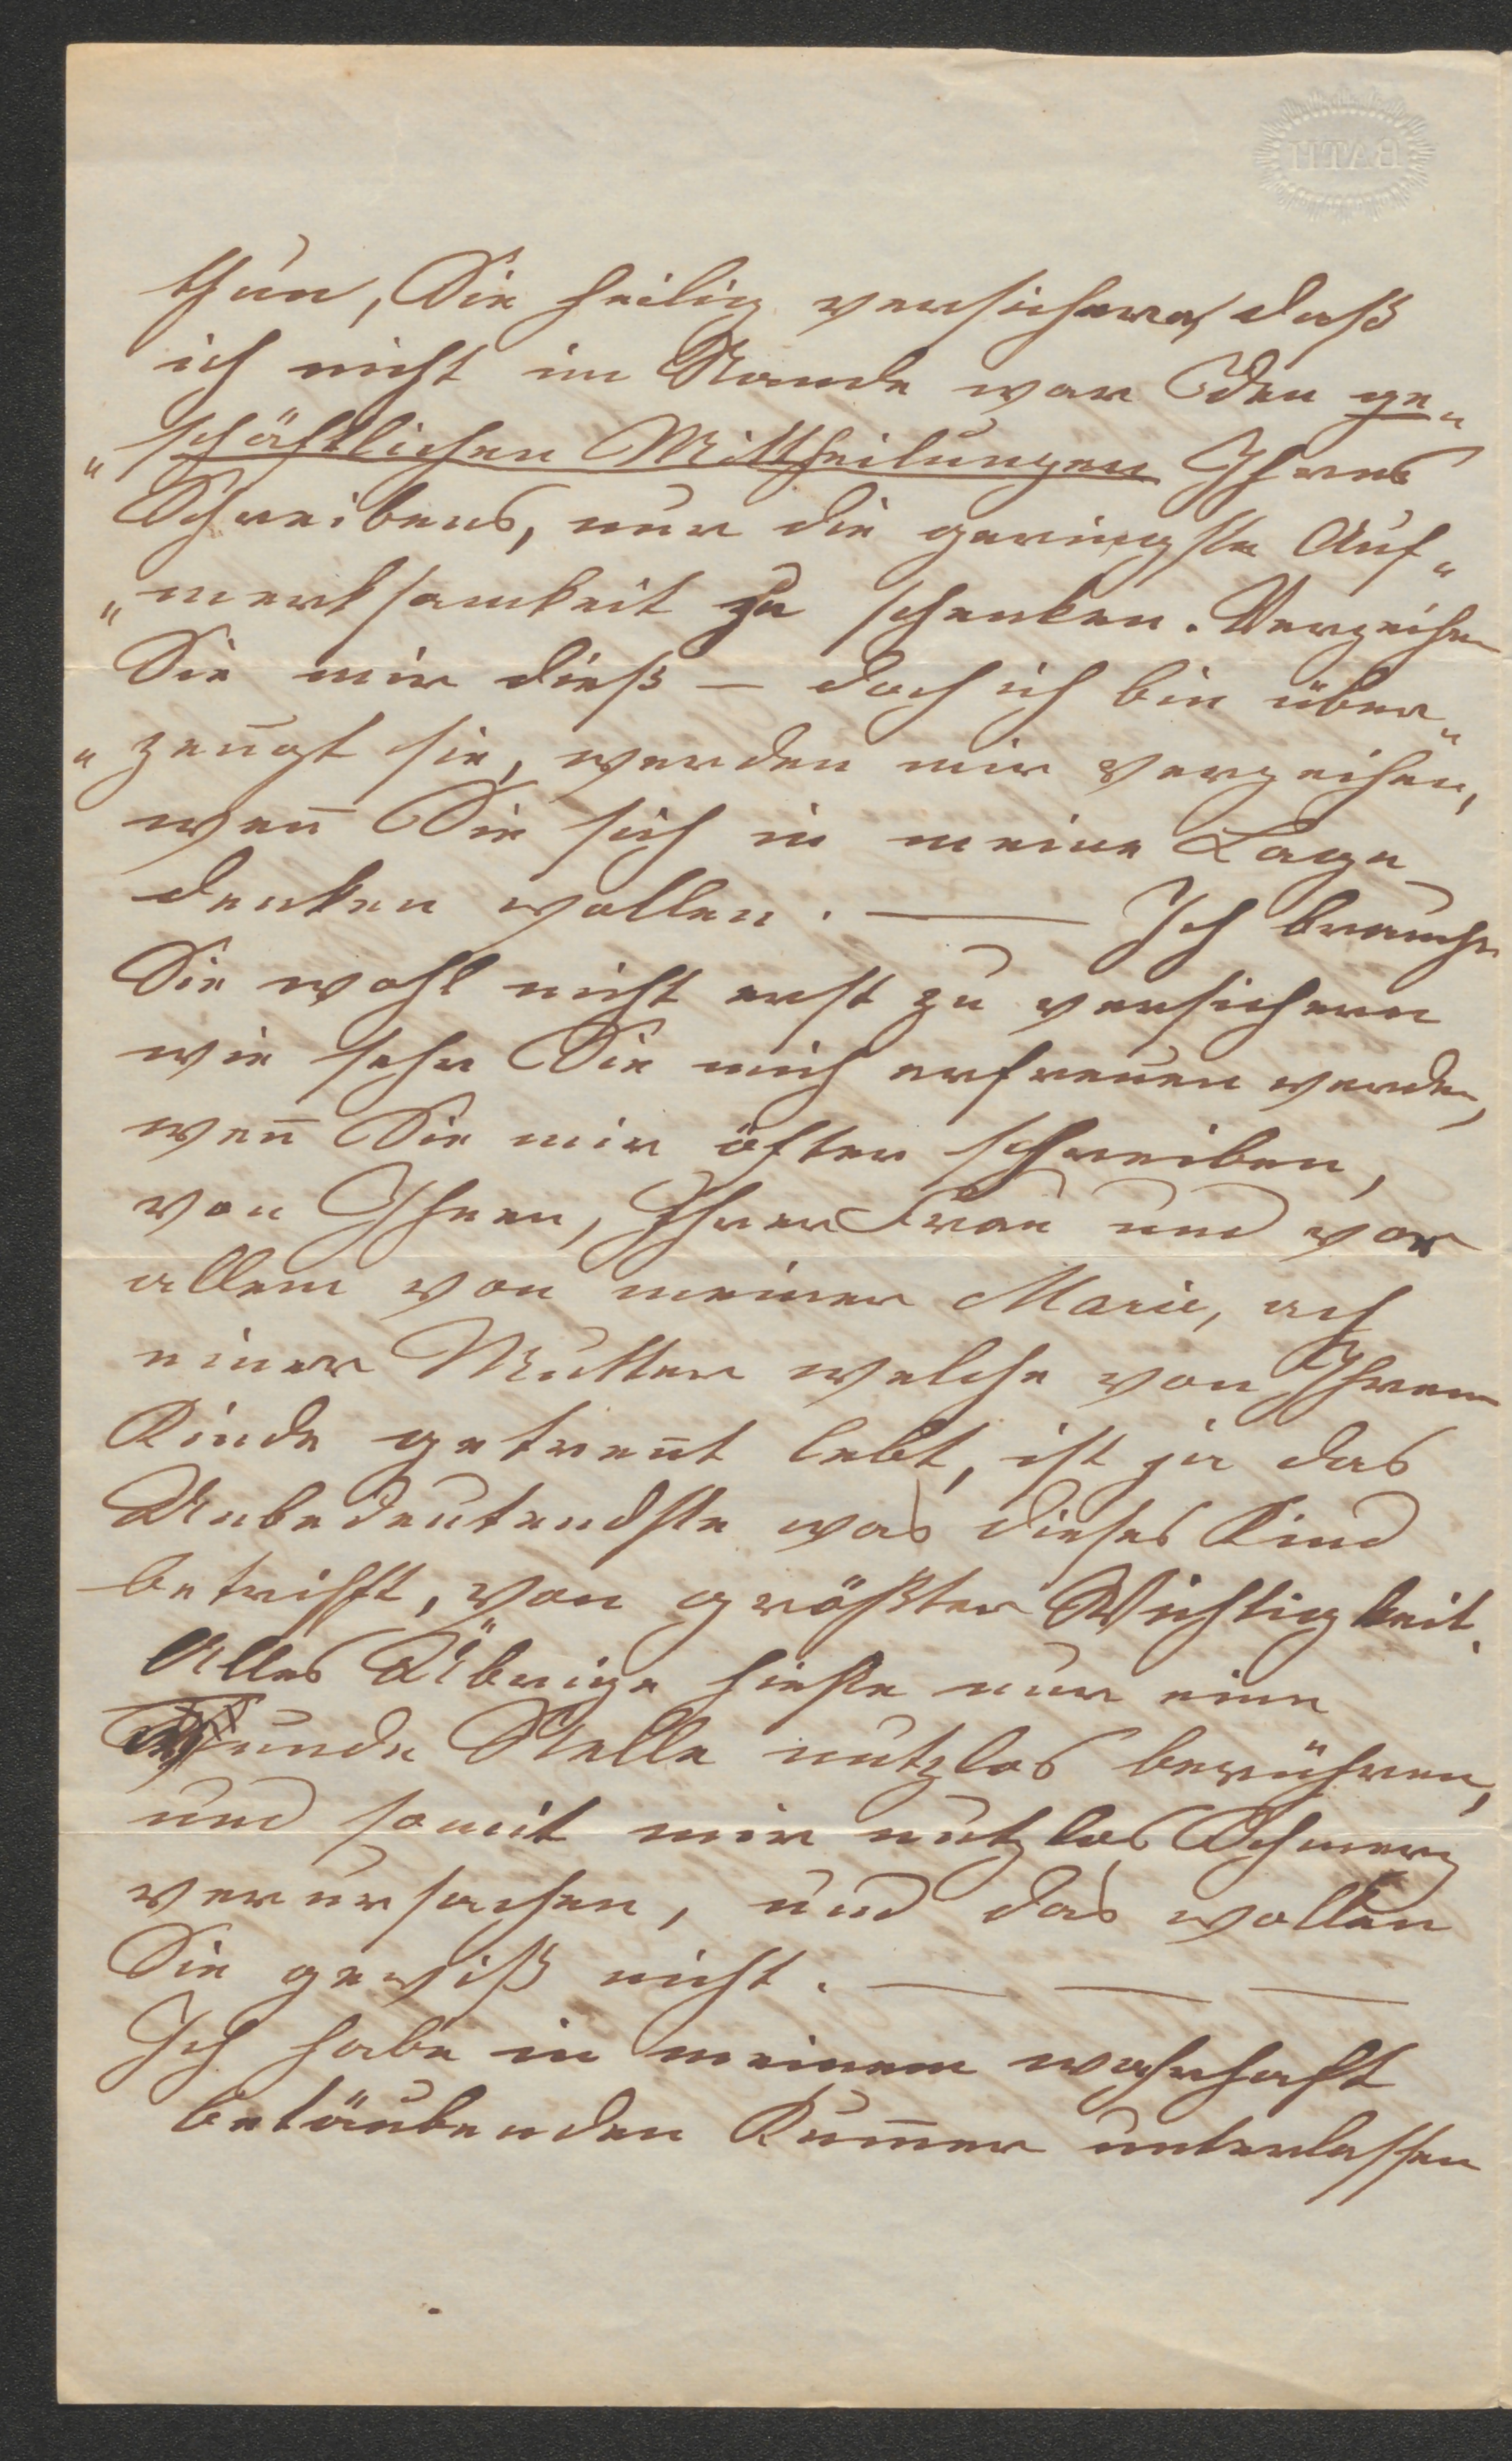 BATH
thun, Sie heilig versichern, daß
ich nicht im Stande war den ge„
„schäftlichen Mittheilungen Ihres
Schreibens, nur die geringste Auf„
„merksamkeit zu schenken. Verzeihen
Sie mir dieß — doch ich bin über„
„zeugt sie, werden mir verzeihen,
weñ Sie sich in meine Lage
denken wollen. — Ich brauche
Sie wohl nicht erst zu versichern
wie sehr Sie mich erfreuen werden,
weñ Sie mir öfter schreiben,
von Ihnen, Ihrer Frau und vor
allem von meiner Marie, ach
einer Mutter welche von Ihrem
Kinde getreñt lebt, ist ja das
Unbedeutendste was dieses Kind
betrifft, von größter Wichtigkeit.
Alles Übrige hieße nur eine
Wunde Stelle nutzlos berühren,
und somit mir nutzlos Schmerz
verursachen, und das wollen
Sie gewiß nicht. — — —
Ich habe in meinem wahrhaft
betäubenden Kum̃er unterlassen